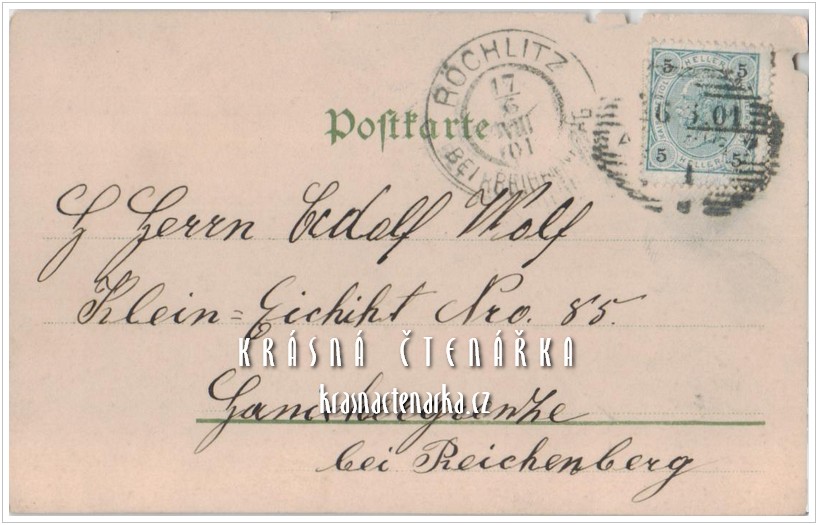 RÖCHLITZ
17
6
VIII
01
BEI REICHENBERG
5 HELLER 5
6 01
5 HELLER 5
Postkarte
Herrn Adolf Wolf
Klein=Eichiht Nro. 85.
KRÁSNÁ ČTENÁŘKA
krasnactenarka.cz
bei Reichenberg